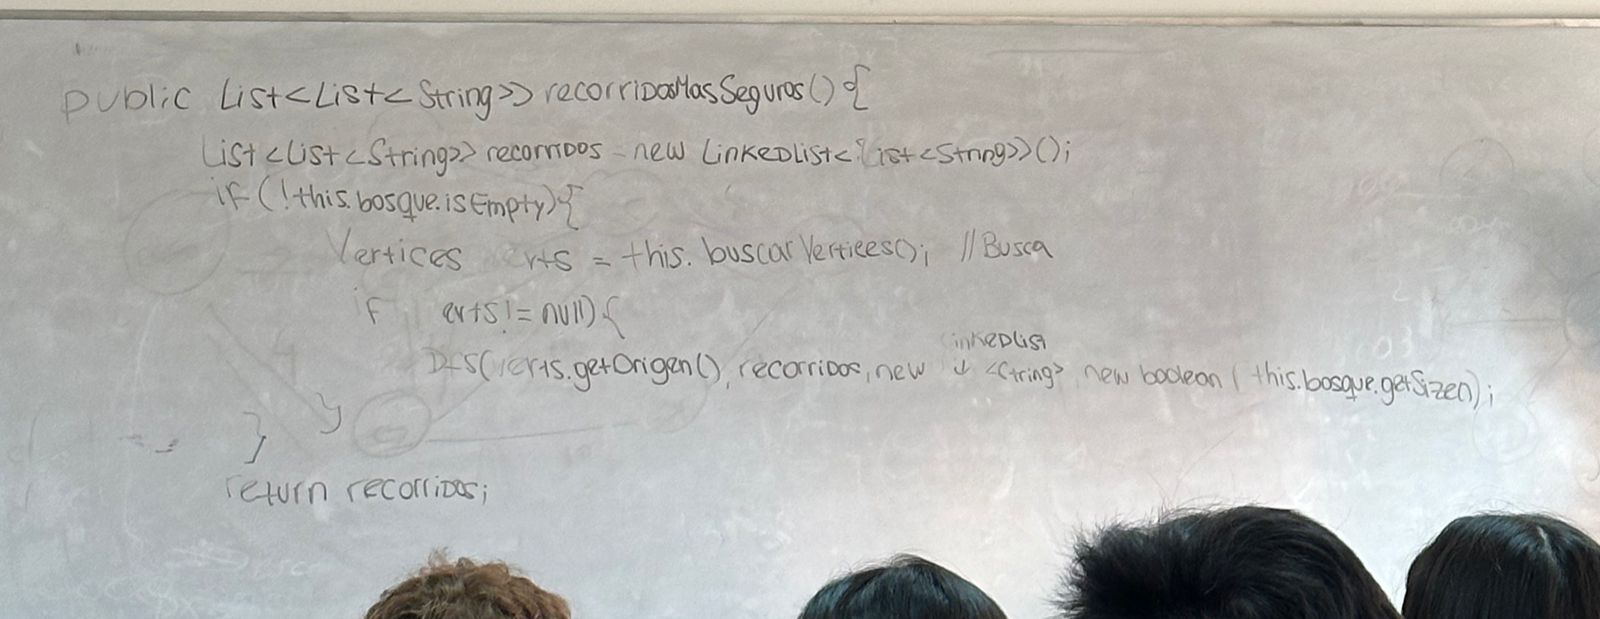 public List<List<String>> recorridosMasSeguros(){
List<List<String>> recorridos = new LinkedList<List<String>>();
if (!this.bosque.isEmpty){
Vertices erts = this.buscarVertices(); //Busca
if erts != null){
LinkedList
DFS(verts.getOrigen(), recorridos, new ↓ <String> new boolean ( this.bosque.getSize());
}
}
return recorridos;